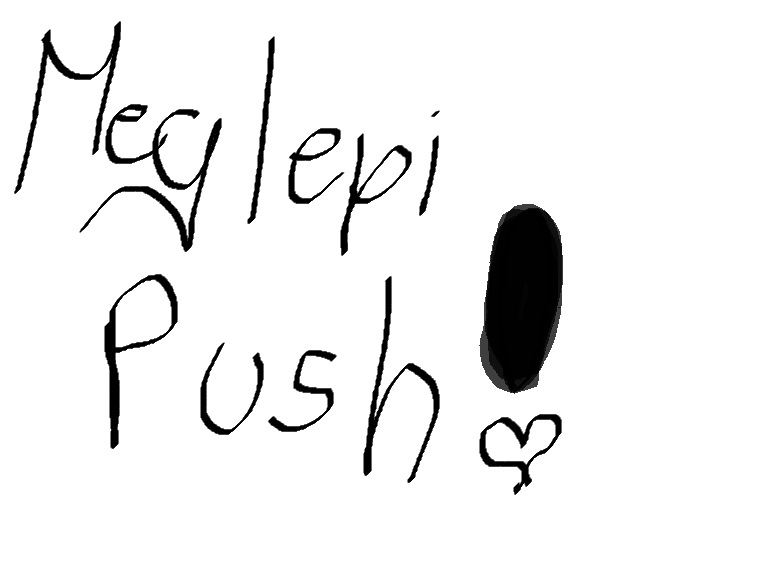 Meglepi
Push!